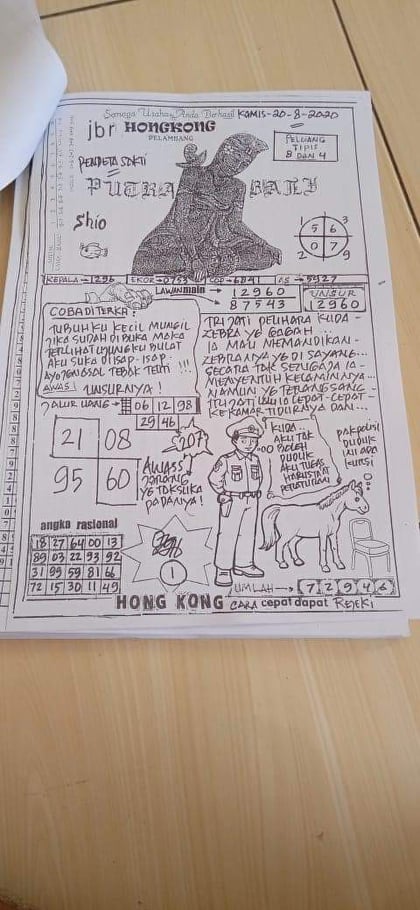 Semoga Usaha Anda Berhasil KAMIS-20-8-2020
jbr HONGKONG
PELAMBANG
PELUANG
TIPIS
8 DAN 4
PENDETA SAKTI
PUTRA BALI
Shio
1 3
5 6
0 7
2 9
KEPALA → 1296 EKOR → 0753 COP → 6841 AS → 5427
LAWAN main → 12960
87543
UNSUR
12960
COBA DI TERKA:
TUBUHKU KECIL MUNGIL
JIKA SUDAH DI BUKA MAKA
TERLIHAT UJUNGKU BULAT
AKU SUKA DI ISAP-ISAP
AYO JENIUSSL TEBAK TEMI !!!
AWAS! UNSURNYA!
TRIJATI PELIHARA KUDA-
ZEBRA YG GAGAH...
IA MAU MEMANDIKAN-
ZEBRANYA YG DI SAYANG...
SECARA TAK SENGAJA IA-
MENYENTUH KELAMINNYA...
NAMUN YG TERANGSANG-
TRIJATI LALU IA CEPAT-CEPAT-
KE KAMAR TIDURNYA DAN...
JALUR UANG → 06 12 98
29 46
21 08
95 60
207?
AWASS
JARANG
YG TOKSLIKA
PADANYA!
KUDA..
AKU TAK
BOLEH
DUDUK
AKU TUGAS
HARUS TAAT
PERATURAN
PAK POLISI
DUDUK
INI ADA
KURSI
angka rasional
18 27 64 00 13
89 03 22 93 92
31 99 59 81 66
72 15 30 11 49
1
JUMLAH → 7 2 9 4 6
HONG KONG CARA cepat dapat REJEKI